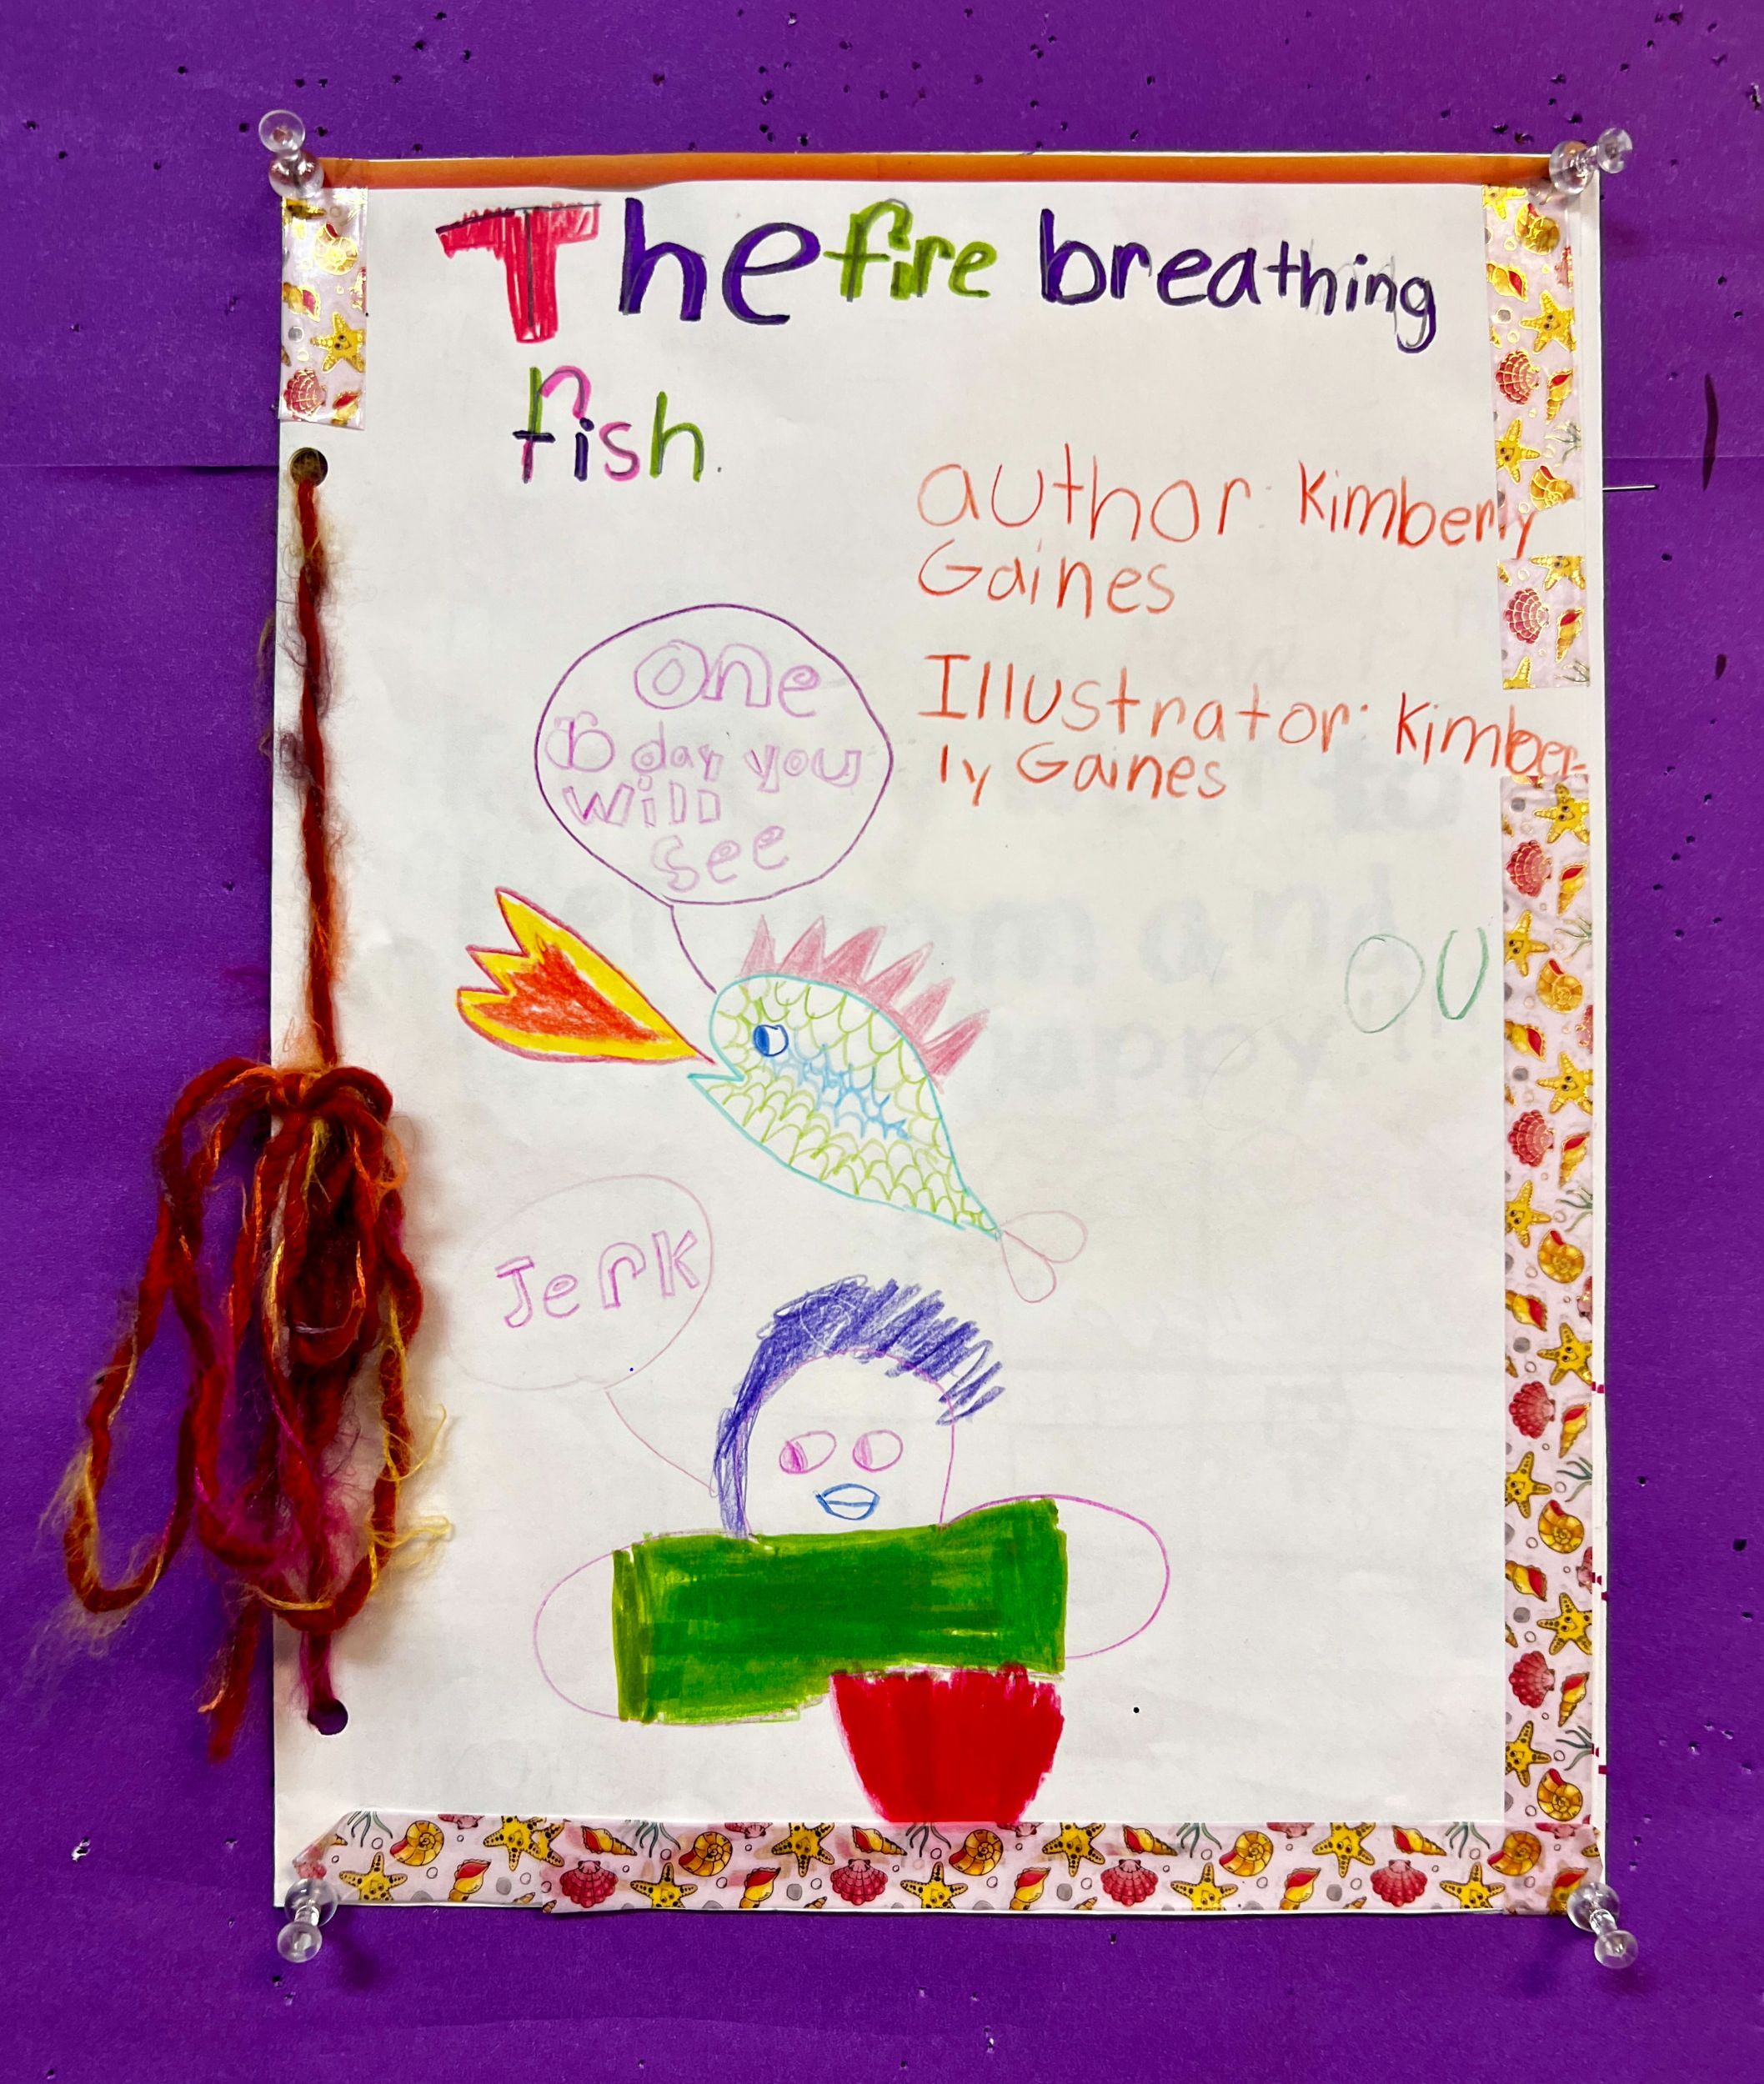 The fire breathing
fish.
author: Kimberly
Gaines
Illustrator: Kimber-
ly Gaines
One
day you
will
see
OU
Jerk